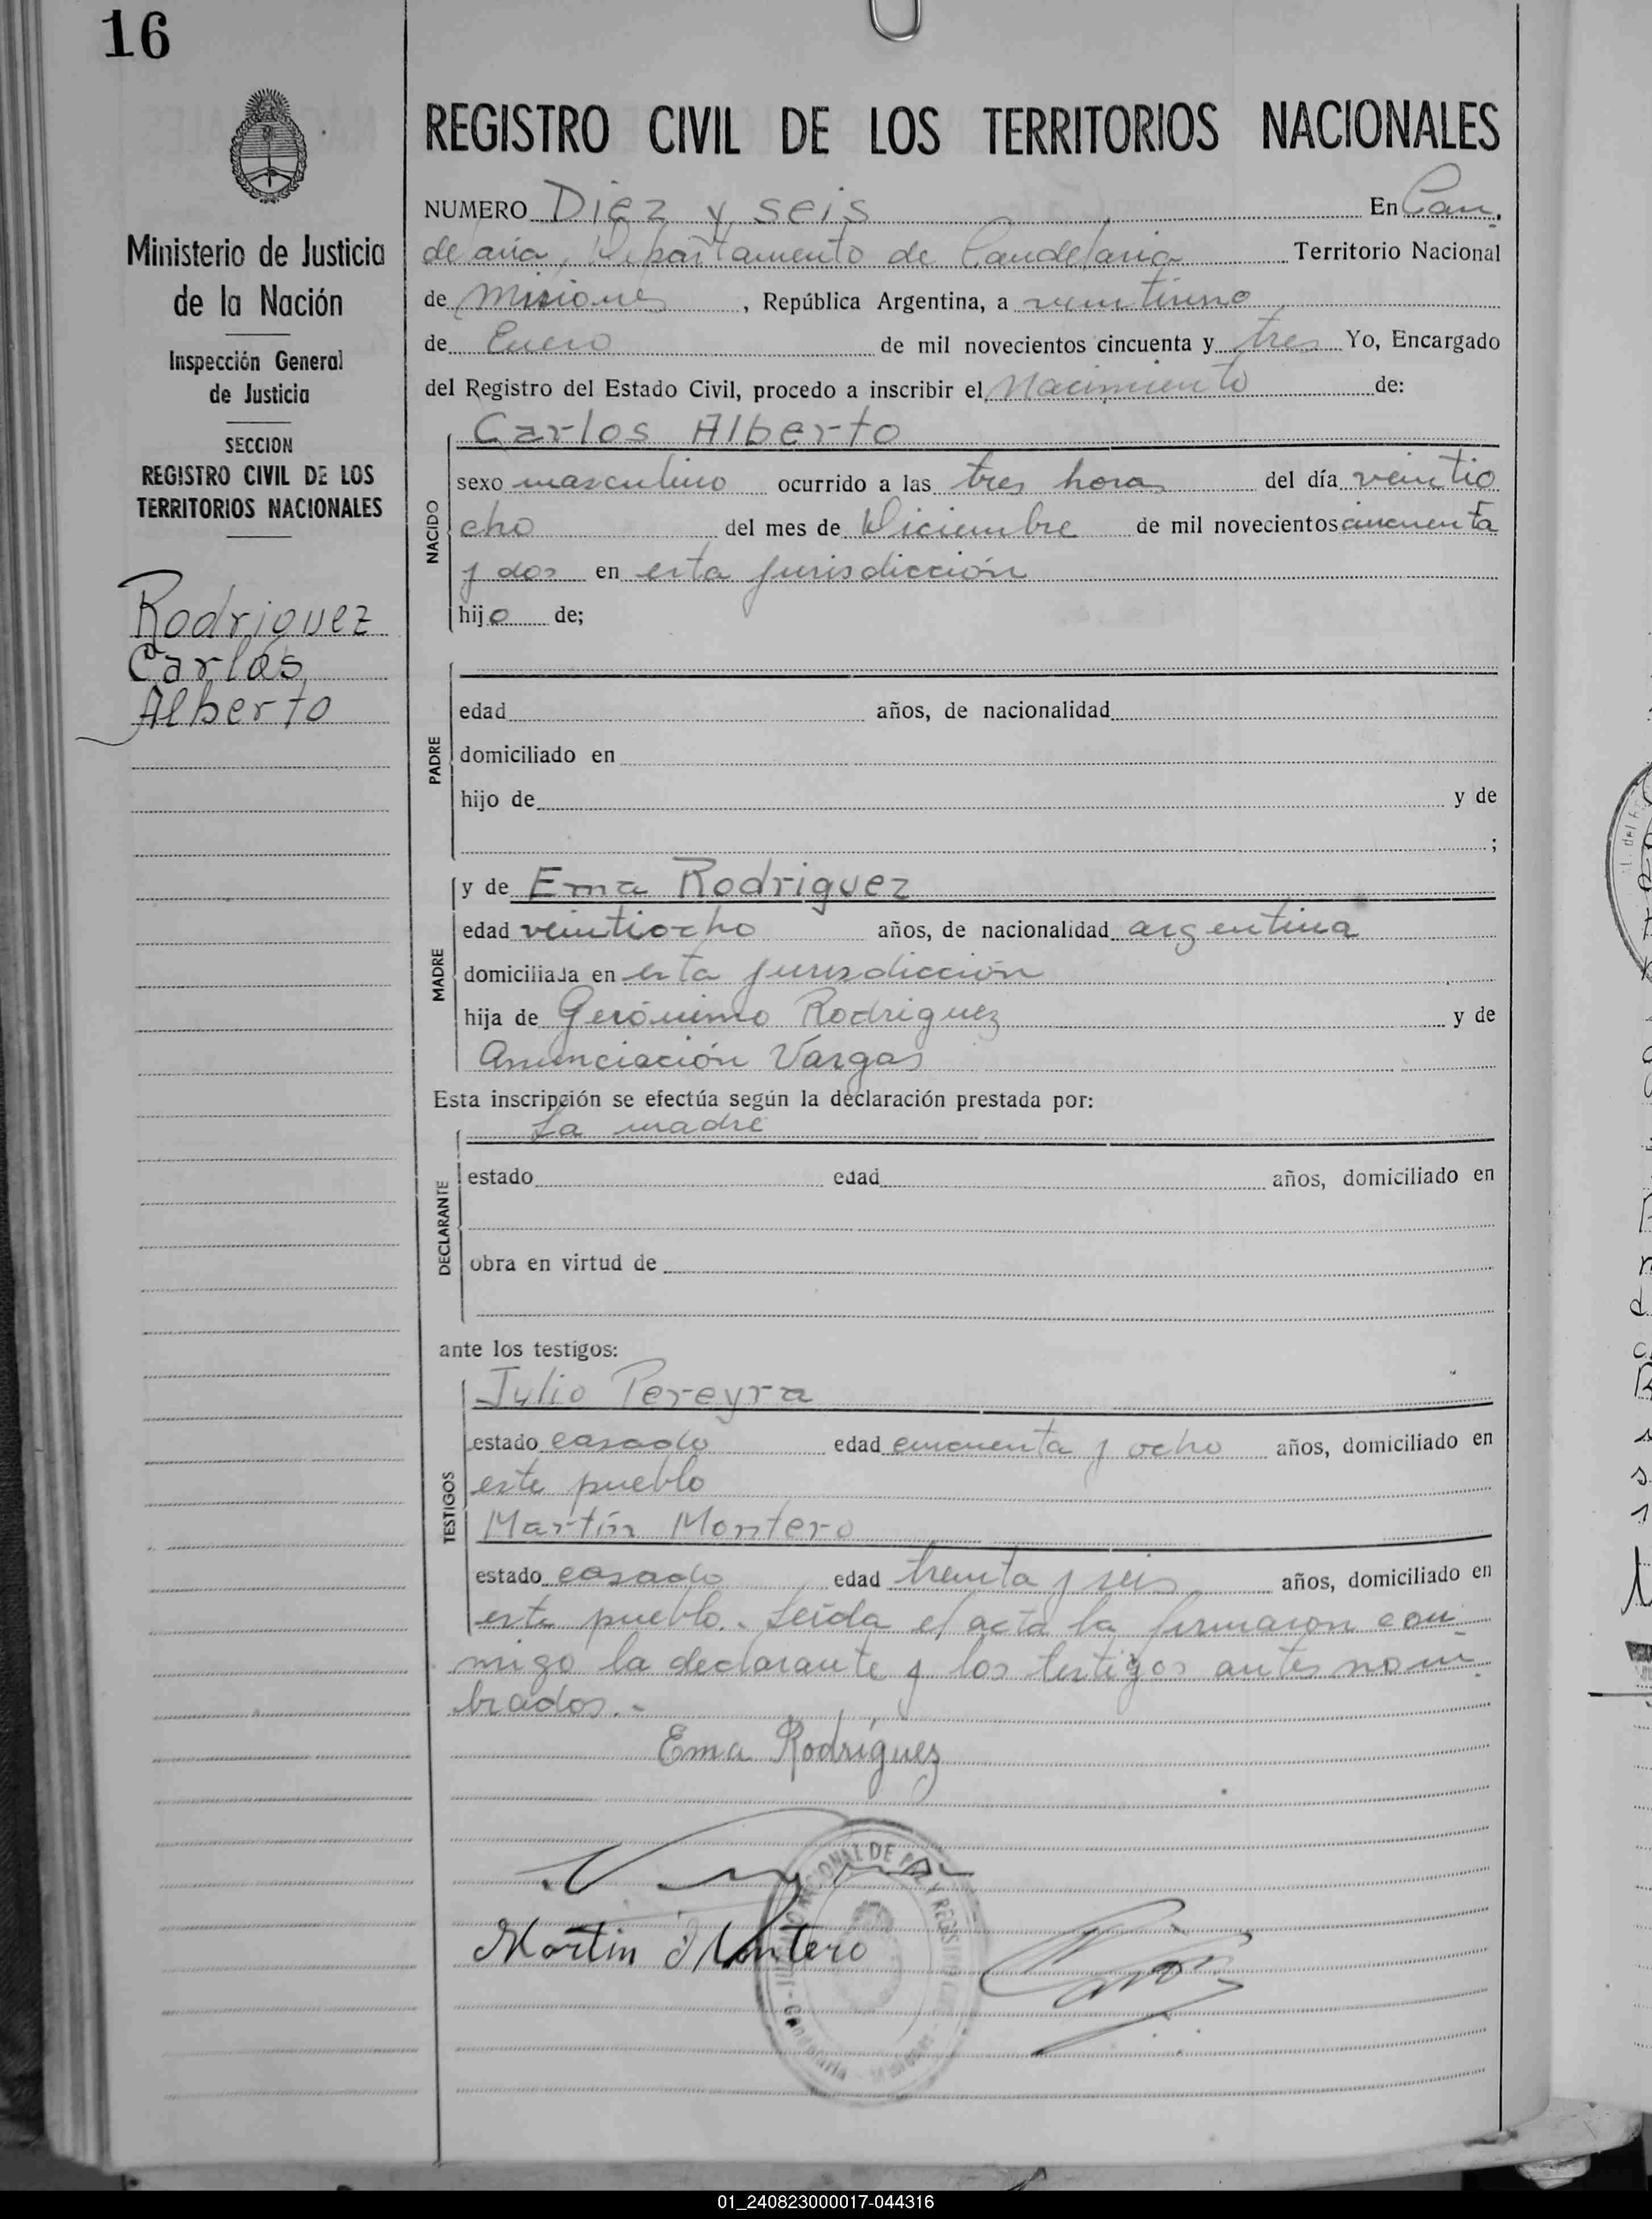 16
Ministerio de Justicia
de la Nación
Inspección General
de Justicia
SECCION
REGISTRO CIVIL DE LOS
TERRITORIOS NACIONALES
Rodriguez
Carlos
Alberto
REGISTRO CIVIL DE LOS TERRITORIOS NACIONALES
NUMERO Diez y seis En Can-
delaria, Departamento de Candelaria Territorio Nacional
de Misiones, República Argentina, a veintiuno
de Enero de mil novecientos cincuenta y tres Yo, Encargado
del Registro del Estado Civil, procedo a inscribir el Nacimiento de:
Carlos Alberto
NACIDO
sexo masculino ocurrido a las tres horas del día veintio
cho del mes de Diciembre de mil novecientos cincuenta
y dos en esta jurisdicción
hijo de;
PADRE
edad años, de nacionalidad
domiciliado en
hijo de y de
;
MADRE
y de Ema Rodriguez
edad veintiocho años, de nacionalidad argentina
domiciliada en esta jurisdicción
hija de Gerónimo Rodriguez y de
Anunciación Vargas
Esta inscripción se efectúa según la declaración prestada por:
La madre
DECLARANTE
estado edad años, domiciliado en
obra en virtud de
ante los testigos:
TESTIGOS
Julio Pereyra
estado casado edad cincuenta y ocho años, domiciliado en
este pueblo
Martín Montero
estado casado edad treinta y seis años, domiciliado en
este pueblo.- Leida el acta la firmaron con-
migo la declarante y los testigos antes nom-
brados.-
Ema Rodríguez
Martin Montero
NACIONAL DE PAZ Y REGISTRO
Candelaria - Misiones
01_240823000017-044316